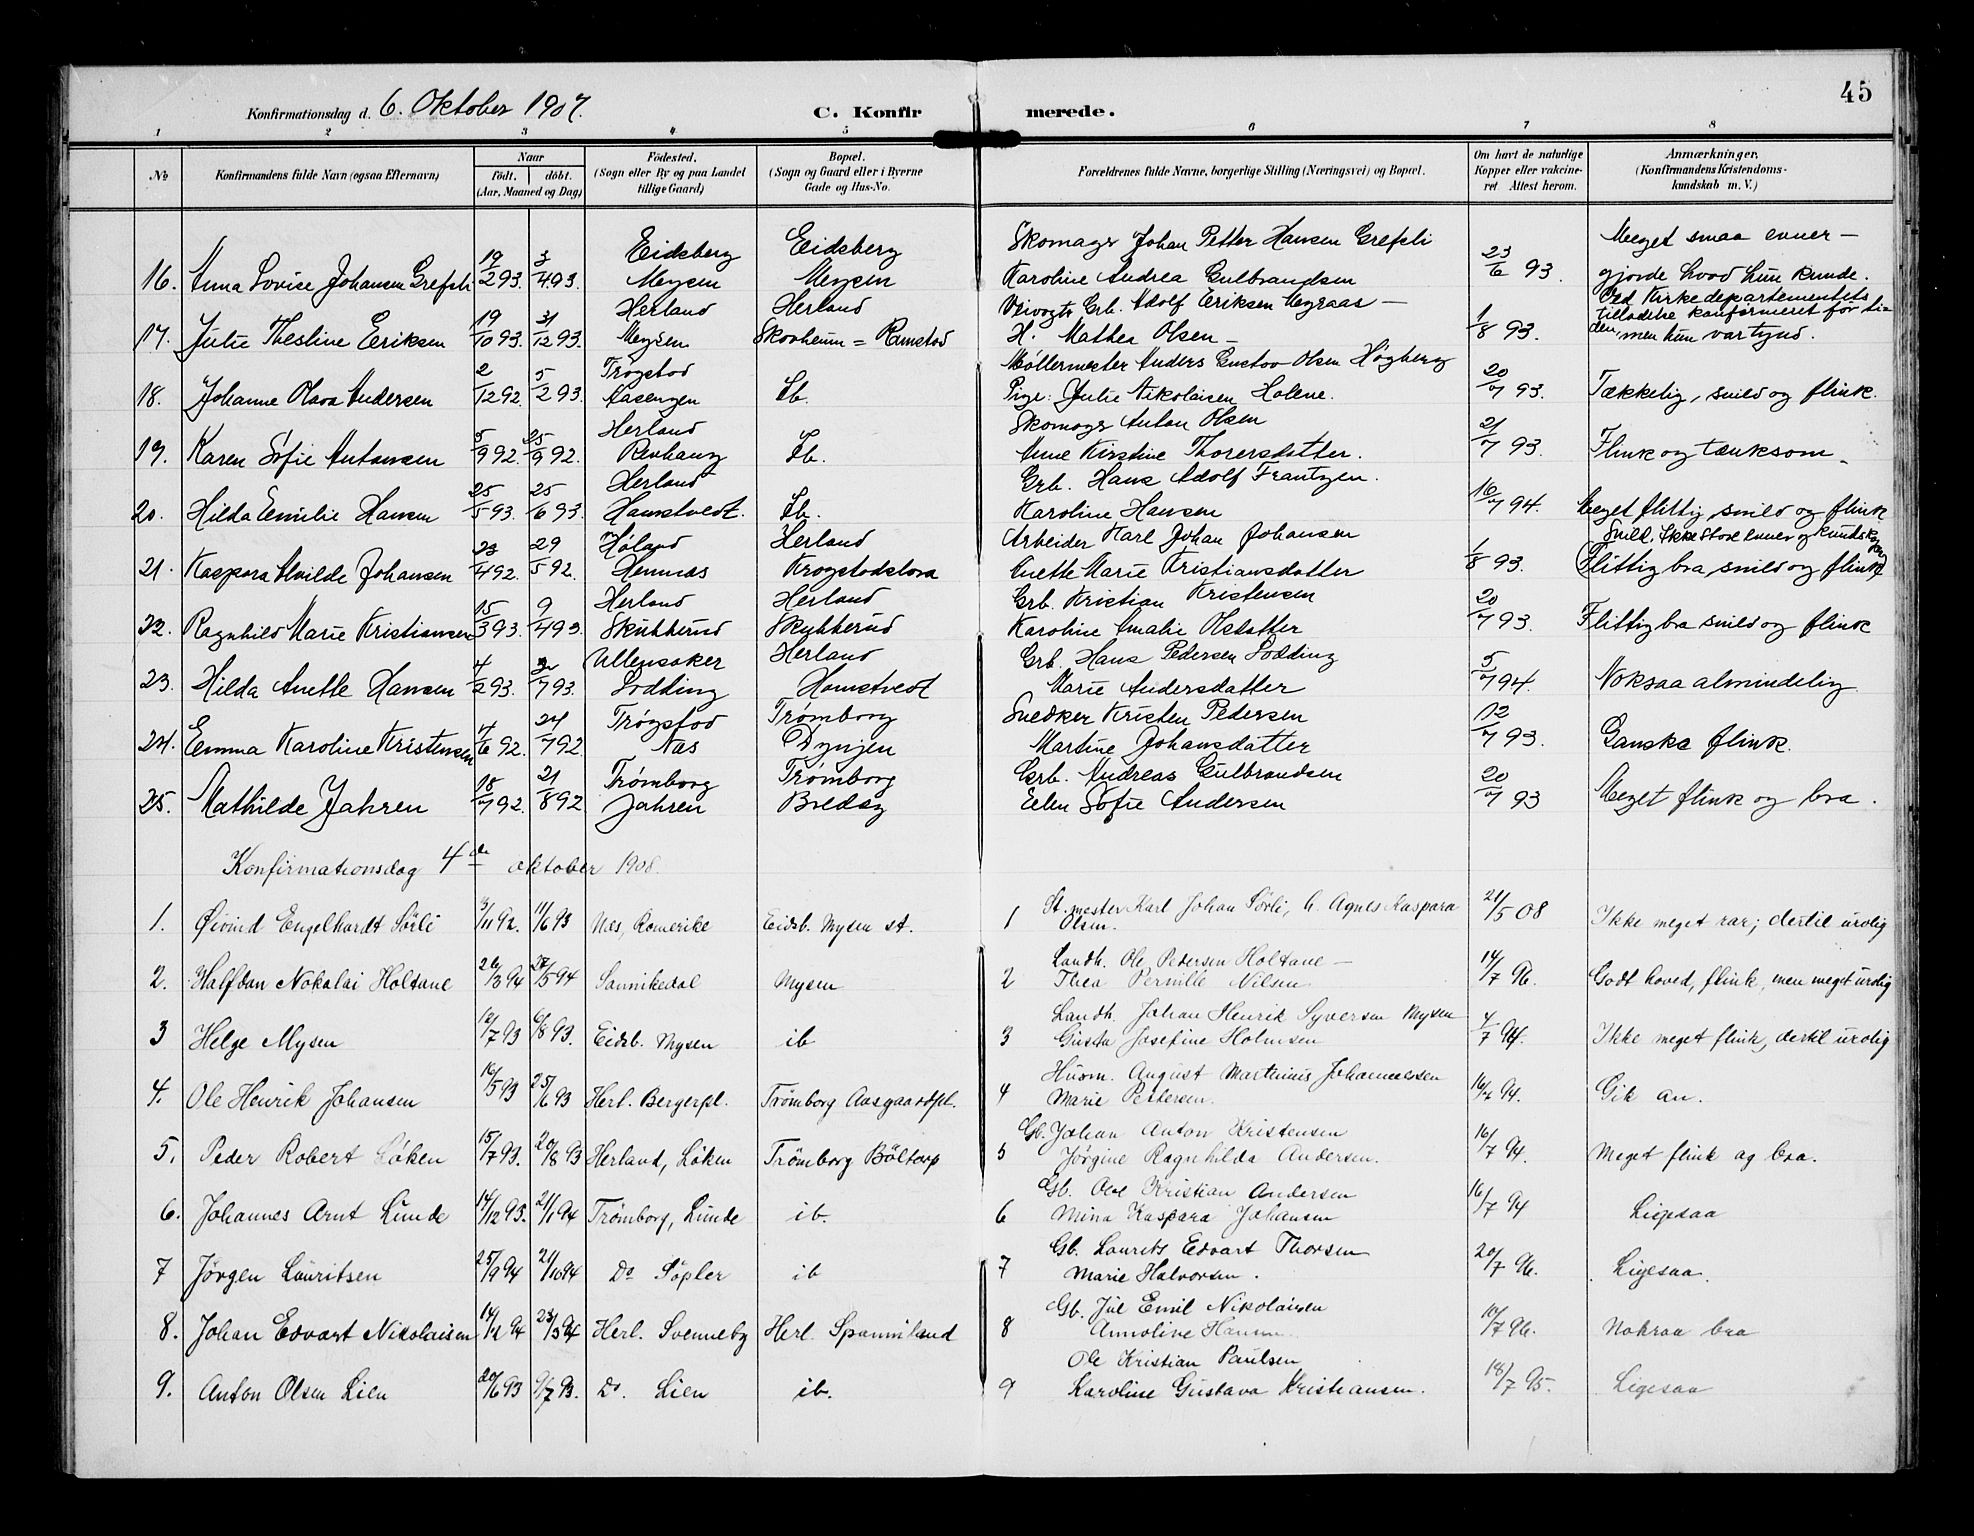 45
Konfirmationsdag d. 6. Oktober 1907.
C. Konfirmerede.
1 2 3 4 5 6 7 8
No
Konfirmandens fulde Navn (ogsaa Efternavn)
Naar
födt. döbt.
(Aar, Maaned og Dag)
Födested.
(Sogn eller By og paa Landet tillige Gaard)
Bopæl.
(Sogn og Gaard eller i Byerne Gade og Hus-No.
Forældrenes fulde Navne, borgerlige Stilling (Næringsvei) og Bopæl.
Om havt de naturlige Kopper eller vakcineret Attest herom.
Anmærkninger.
(Konfirmandens Kristendomskundskab m. V.)
Eidsberg Eidsberg Skomager Johan Petter Hansen Grefsli Meget smaa evner —
16. Anna Lovise Johansen Grefsli 19/2 93. 3/4 93. Mysen Mysen Karoline Andrea Gulbrandsen 23/6 93. gjorde hvad hun kunde.
Herland Herland Veivogts Grb. Adolf Eriksen — Ved Kirkedepartementets tilladelse konfirmeret før tiden,
17. Julie Thesline Eriksen 19/10 93. 31/12 93. Mysen Skovheim = Ramstad H. Mathea Olsen — 1/8 93. men hun var tynd.
Trøgstad Møllermester Anders Gustav Olsen Høgberg
18. Johanne Olava Andersen 2/12 92. 5/2 93. Aasengen Ib. Pige: Julie Nikolaisen Holene. 20/7 93. Tækkelig, snild og flink.
Herland Skomager Anton Olsen
19. Karen Sofie Antonsen 5/9 92. 25/9 92. Revhaug Ib. Anne Kirstine Thorersdatter. 21/7 93. Flink og tænksom.
Herland Grb. Hans Adolf Frantzen.
20. Hilda Emilie Hansen 25/5 93. 25/6 93. Hamstvedt. Ib. Karoline Hansen 16/7 94. Meget flittig snild og flink
Høland Herland Arbeider Karl Johan Johansen Snild. Ikke store evner og kundskaper
21. Kaspara Alvilde Johansen 23/4 92. 29/5 92. Hemnæs Krogstadslora Anette Marie Kristiansdatter 1/8 93. (Flittig bra, snild og flink)
Herland Herland Grb. Kristian Kristensen
22. Ragnhild Marie Kristiansen 15/3 93. 9/4 93. Skubberud Skubberud Karoline Amalie Olsdatter 20/7 93. Flittig bra snild og flink
Ullensaker Herland Grb. Hans Pedersen Lodding
23. Hilda Anette Hansen 4/2 93. /7 93. Lodding Hamstvedt Marie Andersdatter 5/7 94. Noksaa almindelig
Trøgstad Trømborg Snedker Kristen Pedersen
24. Emma Karoline Kristensen 4/6 92. 24/7 92 Næs Dynjen Martine Johansdatter 12/7 93. Ganske flink.
Trømborg Trømborg Grb. Andreas Gulbrandsen
25. Mathilde Jahren 18/7 92. 21/8 92 Jahren Bredeg Ellen Sofie Andersen 20/7 93 Meget flink og bra.
Konfirmationsdag 4de oktober 1908.
St. mester Karl Johan Sörli, h. Agnes Kaspara
1. Öivind Engelhardt Sörli 3/11 92. 11/6 93 Næs, Romerike Eidsb. Mysen st. 1 Olsen. 21/5 08 Ikke meget rar; dertil urolig
Landh. Ole Pedersen Holtane —
2. Halfdan Nokalai Holtane 26/3 94 27/5 94 Sannikedal Mysen 2 Thea Pernille Nilsen 14/7 96. Godt hoved, flink, men meget urolig
Landh. Johan Henrik Syversen Mysen
3 Helge Mysen 12/7 93 6/8 93. Eidsb. Mysen ib 3 Gusta Josefine Holmsen 4/7 94. Ikke meget flink, dertil urolig
Husm. August Martinius Johannessen
4. Ole Henrik Johansen 16/5 93 25/6 93 Herl. Bergerpl. Trömborg Aasgaardpl. 4 Marie Pettersen. 16/7 94. Gik an.
Gb. Johan Anton Kristensen
5. Peder Robert Löken 15/7 93. 20/8 93 Herland, Löken Trömborg Böltorp 5 Jörgine Ragnhilda Andersen. 16/7 94. Meget flink og bra.
Gb. Ole Kristian Andersen
6. Johannes Arnt Lunde 14/12 93. 21/1 94 Trömborg, Lunde ib. 6 Mina Kaspara Johansen 16/7 94 Ligesaa
Gb. Laurits Edvart Thorsen
7 Jörgen Lauritsen 25/9 94 21/10 94 Do Söpler ib 7 Marie Halvorsen. 20/7 96. Ligesaa.
Gb. Jul Emil Nikolaisen
8. Johan Edvart Nikolaisen 14/12 94 23/3 94 Herl. Svenneby Herl. Spanniland 8 Annoline Hansen 10/7 96. Noksaa bra
Ole Kristian Paulsen
9. Anton Olsen Lien 20/6 93 9/7 93. Do. Lien ib. 9 Karoline Gustava Kristiansen. 18/7 95. Ligesaa